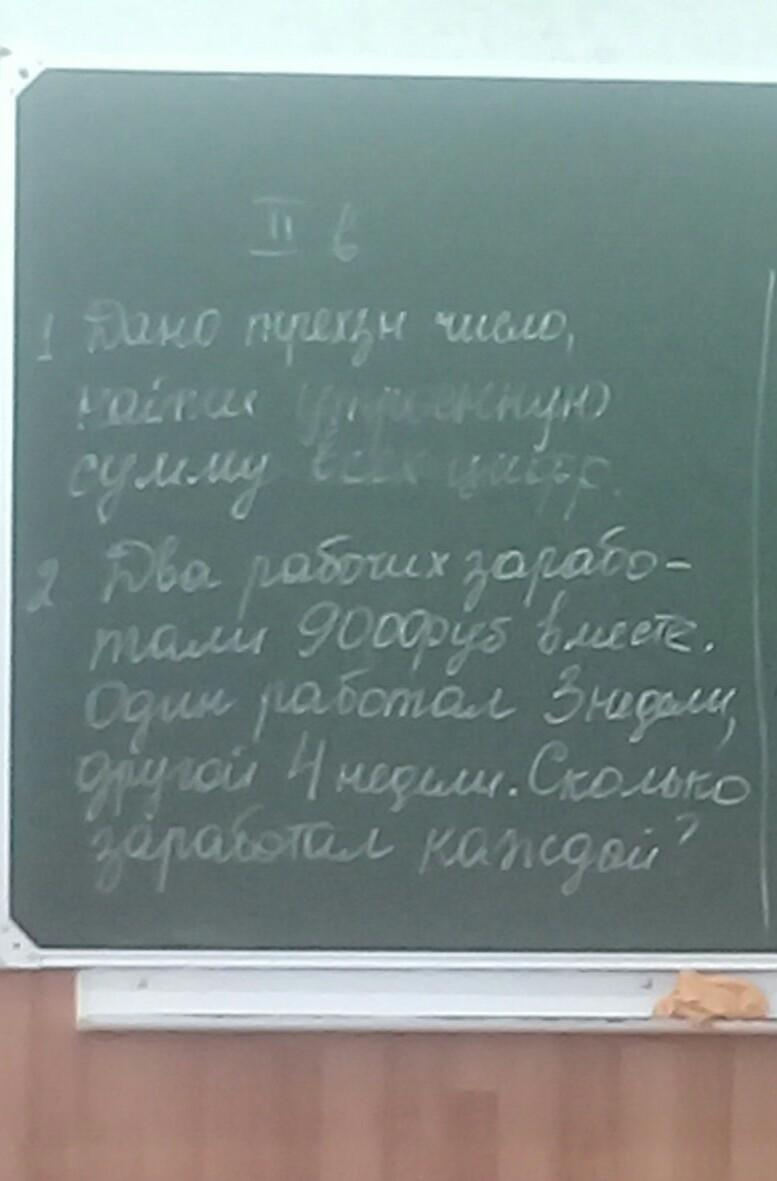 II в
1 Дано трехзн число,
найти утроенную
сумму всех цифр.
2 Два рабочих зарабо-
тали 9000руб вместе.
Один работал 3 недели,
другой 4 недели. Сколько
заработал каждой?